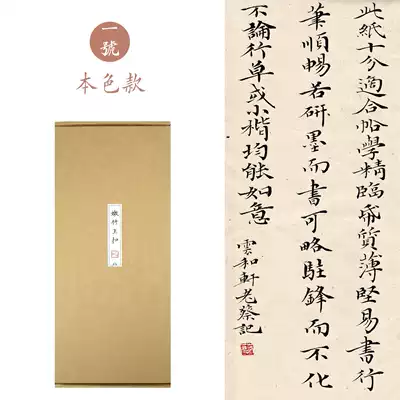 一號
本色款
嫩竹玉扣
此紙十分適合帖學精臨帋質薄堅易書行
筆順暢若研墨而書可略駐鋒而不化
不論行草或小楷均能如意
雲和軒老蔡記